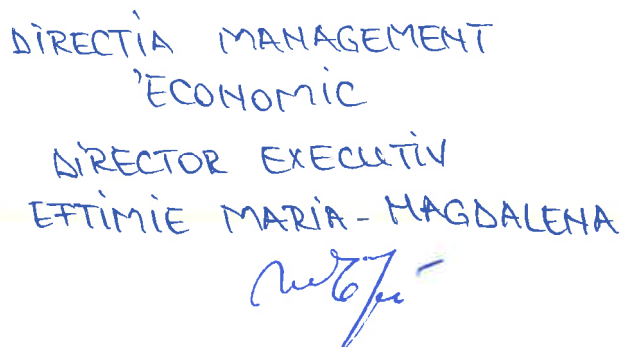 DIRECTIA MANAGEMENT
ECONOMIC
DIRECTOR EXECUTIV
EFTIMIE MARIA-MAGDALENA